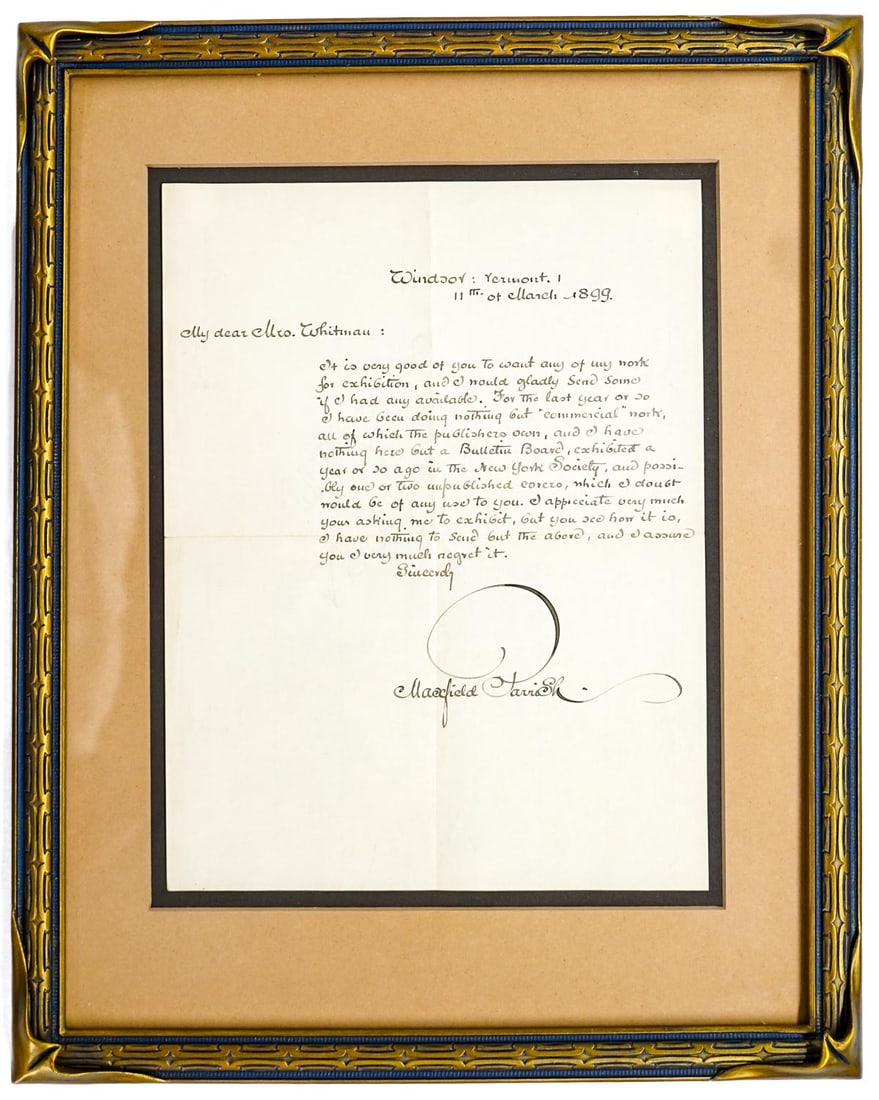 Windsor : Vermont.
11th. of March 1899.
My dear Mrs. Whitman :
It is very good of you to want any of my work
for exhibition, and I would gladly send some
if I had any available. For the last year or so
I have been doing nothing but "commercial" work,
all of which the publishers own, and I have
nothing here but a Bulletin Board, exhibited a
year or so ago in the New York Society, and possi-
bly one or two unpublished covers, which I doubt
would be of any use to you. I appreciate very much
your asking me to exhibit, but you see how it is,
I have nothing to send but the above, and I assure
you I very much regret it.
Sincerely
Maxfield Parrish.